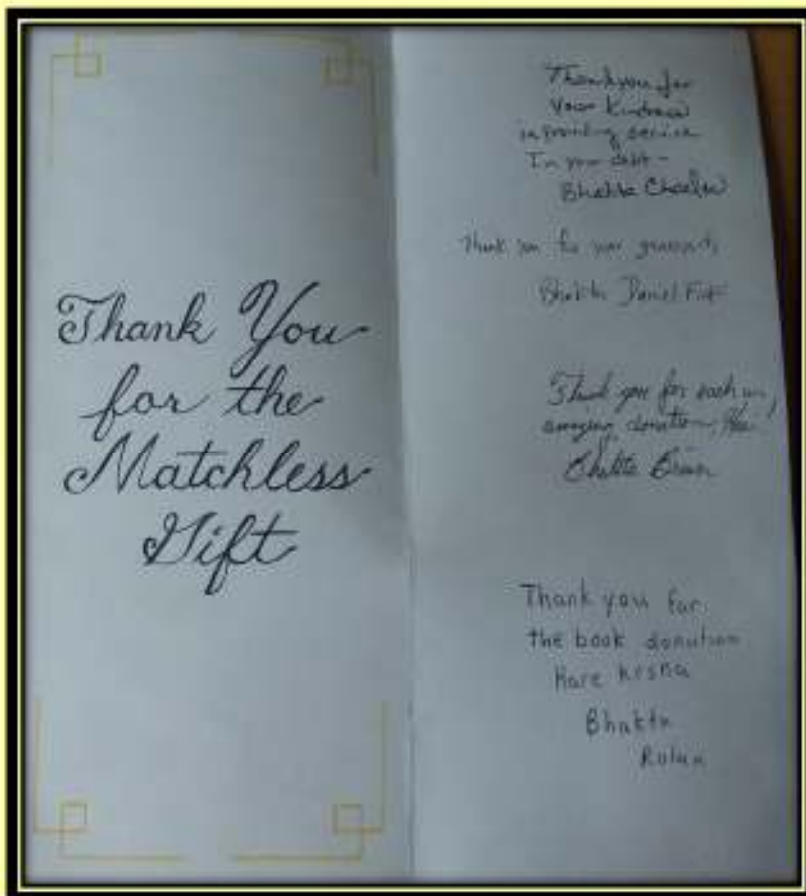 Thank You
for the
Matchless
Gift
Thank you for
your Kindness
in providing service
In your debt -
Bhakta
Thank you for your generosity
Bhakta Daniel
Thank you for
amazing donation,
Bhakta Brian
Thank you for
the book donation
Hare Krsna
Bhakta